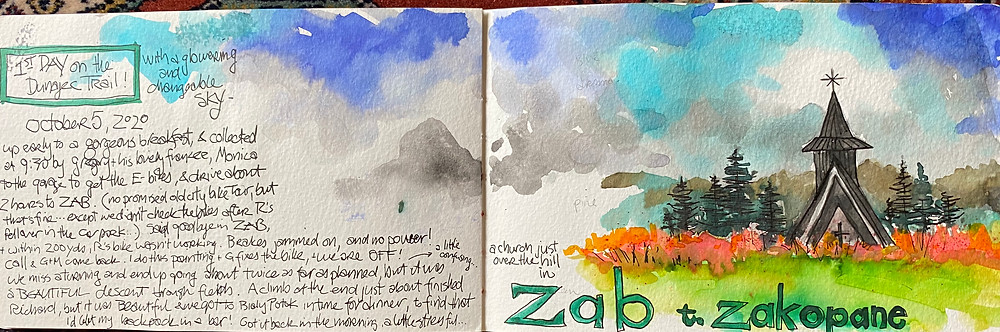 1ST DAY on the
Dunajec Trail!
with a glowering
and
changeable
SKY-
October 5, 2020
up early to a gorgeous breakfast, & collected
at 9:30 by gregory + his lovely fiancee, Monica
to the garage to get the E-bikes, & drive about
2 hours to ZAB. (no promised old city bike tour, but
that's fine... except we didn't check the bikes after R's
fall over in the car park...) Said goodbye in ZAB,
+ within 200 yds, R's bike wasn't working. Breakes jammed on, and no power!
Call & G+M come back. I do this painting + G fixes the bike, + we are OFF!
a little
confusing...
we miss a turning and end up going about twice as far as planned, but it was
a BEAUTIFUL descent through fields. A climb at the end just about finished
Richard, but it was Beautiful and we got to Bialy Potok in time for dinner, to find that
I'd left my backpack in a bar! Got it back in the morning, a little stressful...
pine
a church just
over the hill
in
Zab to Zakopane